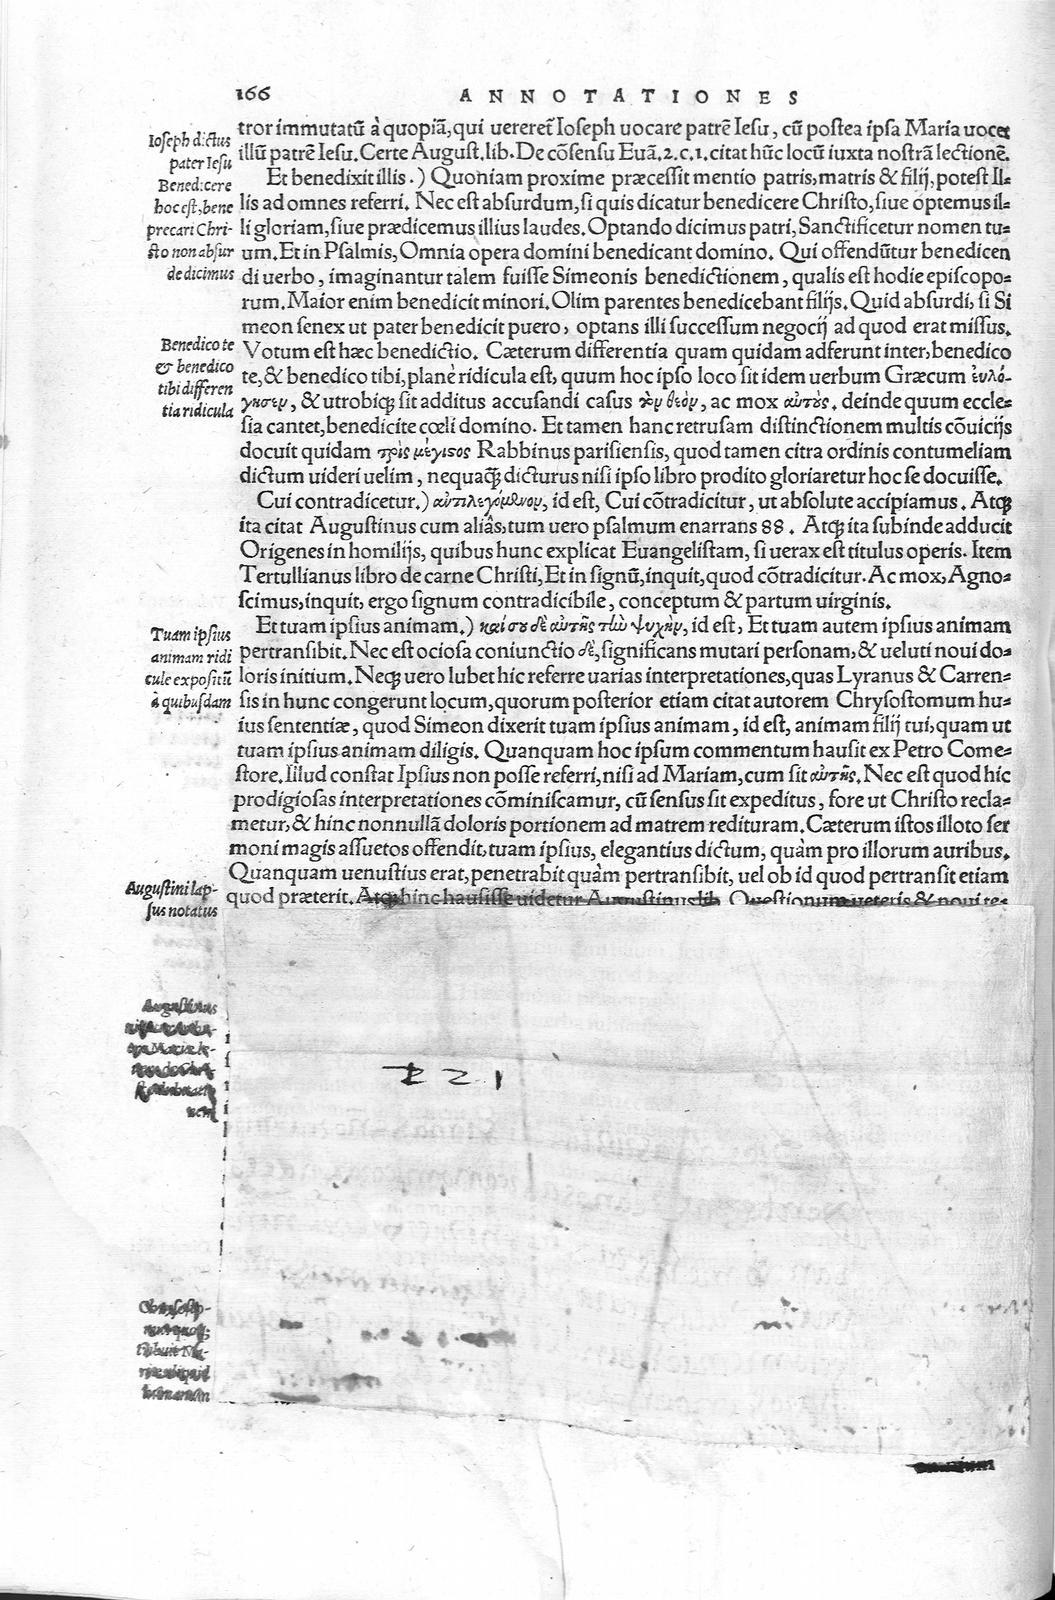 166 ANNOTATIONES
Ioseph dictus
pater Iesu
Benedicere
hoc est, bene
precari Chri-
sto non absur
de dicimus
Benedico te
& benedico
tibi differen
tia ridicula
Tuam ipsius
animam ridi
cule expositũ
à quibusdam
Augustini lap-
sus notatus
tror immutatũ à quopiã, qui ueteret̃ Ioseph uocare patrẽ Iesu, cũ postea ipsa Maria uocet
illũ patrẽ Iesu. Certe August. lib. De cõsensu Euã. 2. c. 1. citat hũc locũ iuxta nostrã lectionẽ.
Et benedixit illis.) Quoniam proxime præcessit mentio patris, matris & filij, potest Il-
lis ad omnes referri. Nec est absurdum, si quis dicatur benedicere Christo, siue optemus il-
li gloriam, siue prædicemus illius laudes. Optando dicimus patri, Sanctificetur nomen tu-
um. Et in Psalmis, Omnia opera domini benedicant domino. Qui offendũtur benedicen
di uerbo, imaginantur talem fuisse Simeonis benedictionem, qualis est hodie episcopo-
rum. Maior enim benedicit minori. Olim parentes benedicebant filijs. Quid absurdi, si Si
meon senex ut pater benedicit puero, optans illi successum negocij ad quod erat missus.
Votum est hæc benedictio. Cæterum differentia quam quidam adferunt inter, benedico
te, & benedico tibi, planè ridicula est, quum hoc ipso loco sit idem uerbum Græcum ἐυλό-
γησεν, & utrobiqꝫ sit additus accusandi casus τὸν θεὸν, ac mox αὐτὸς. deinde quum eccle-
sia cantet, benedicite cœli domino. Et tamen hanc retrusam distinctionem multis cõuicijs
docuit quidam τρὶς μέγιστος Rabbinus parisiensis, quod tamen citra ordinis contumeliam
dictum uideri uelim, nequaqꝫ dicturus nisi ipso libro prodito gloriaretur hoc se docuisse.
Cui contradicetur.) ἀντιλεγόμενον, id est, Cui cõtradicitur, ut absolute accipiamus. Atqꝫ
ita citat Augustinus cum aliâs, tum uero psalmum enarrans 88. Atqꝫ ita subinde adducit
Origenes in homilijs, quibus hunc explicat Euangelistam, si uerax est titulus operis. Item
Tertullianus libro de carne Christi, Et in signũ, inquit, quod cõtradicitur. Ac mox, Agno-
scimus, inquit, ergo signum contradicibile, conceptum & partum uirginis.
Et tuam ipsius animam.) καὶ σου δὲ αὐτῆς τὴν ψυχὴν, id est, Et tuam autem ipsius animam
pertransibit. Nec est ociosa coniunctio δὲ, significans mutari personam, & ueluti noui do-
loris initium. Neqꝫ uero lubet hic referre uarias interpretationes, quas Lyranus & Carren-
sis in hunc congerunt locum, quorum posterior etiam citat autorem Chrysostomum hu-
ius sententiæ, quod Simeon dixerit tuam ipsius animam, id est, animam filij tui, quam ut
tuam ipsius animam diligis. Quanquam hoc ipsum commentum hausit ex Petro Come-
store. Illud constat Ipsius non posse referri, nisi ad Mariam, cum sit αὐτῆς. Nec est quod hic
prodigiosas interpretationes cõminiscamur, cũ sensus sit expeditus, fore ut Christo recla-
metur, & hinc nonnullã doloris portionem ad matrem redituram. Cæterum istos illoto ser
moni magis assuetos offendit, tuam ipsius, elegantius dictum, quàm pro illorum auribus.
Quanquam uenustius erat, penetrabit quàm pertransibit, uel ob id quod pertransit etiam
quod præterit. Atqꝫ hinc hausisse uidetur Augustinus lib. Quæstionum ueteris & noui te-